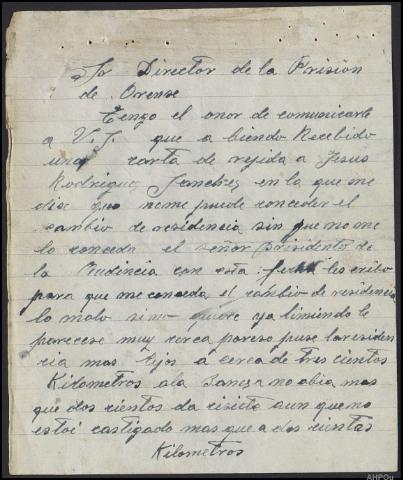 Sr Director de la Prision
de Orense
Tengo el onor de comunicarle
a V. J. que a biendo Recebido
una carta de rejida a Jesus
Rodriguez Sanchez en la que me
dice que nome puede conceder el
cambio de residencia sin que no me
lo conceda el señor Prisidente de
la Audincia con esta les cribo
para que me conceda el cambio de residencia
lo malo si no quiere ya
parecese muy cerca poreso puse la residen
cia mas lejos a cerca de tres cientos
Kilometros a la no abia mas
que dos cientos da aun que no
estoi castigado mas que a dos cientos
Kilometros
AHPOu